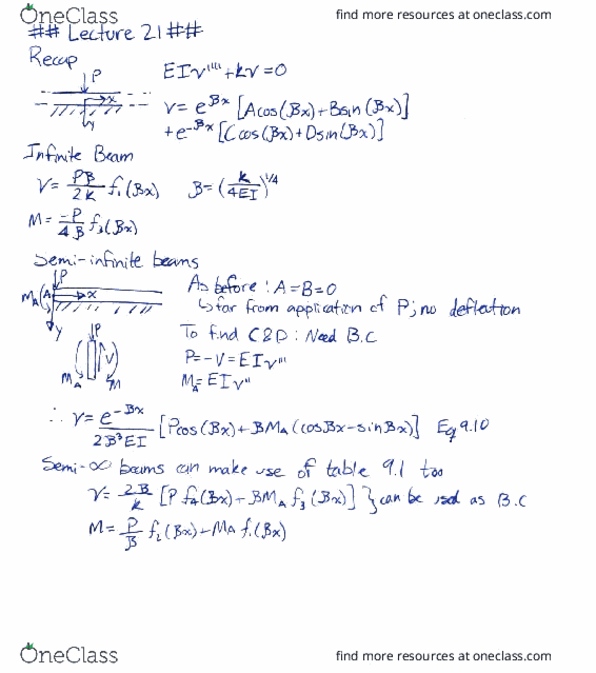 OneClass find more resources at oneclass.com
## Lecture 21 ##
Recap
P
x
y
EIv'''' + kv = 0
v = e^βx [A cos(βx) + B sin(βx)]
+ e^-βx [C cos(βx) + D sin(βx)]
Infinite Beam
v = Pβ/2k f₁(βx) β = (k/4EI)^1/4
M = -P/4β f₃(βx)
Semi-infinite beams
P
M_A (A x
y
As before : A = B = 0
↳ far from application of P ; no deflection
To find C & D : Need B.C
P
V
M_A M
P = -V = EIv'''
M_A = EIv''
∴ v = e^-βx/2β³EI [P cos(βx) + βM_A (cosβx - sinβx)] Eq 9.10
Semi-∞ beams can make use of table 9.1 too
v = 2β/k [P f₄(βx) - βM_A f₃(βx)] } can be used as B.C
M = P/β f₂(βx) - M_A f₁(βx)
OneClass find more resources at oneclass.com